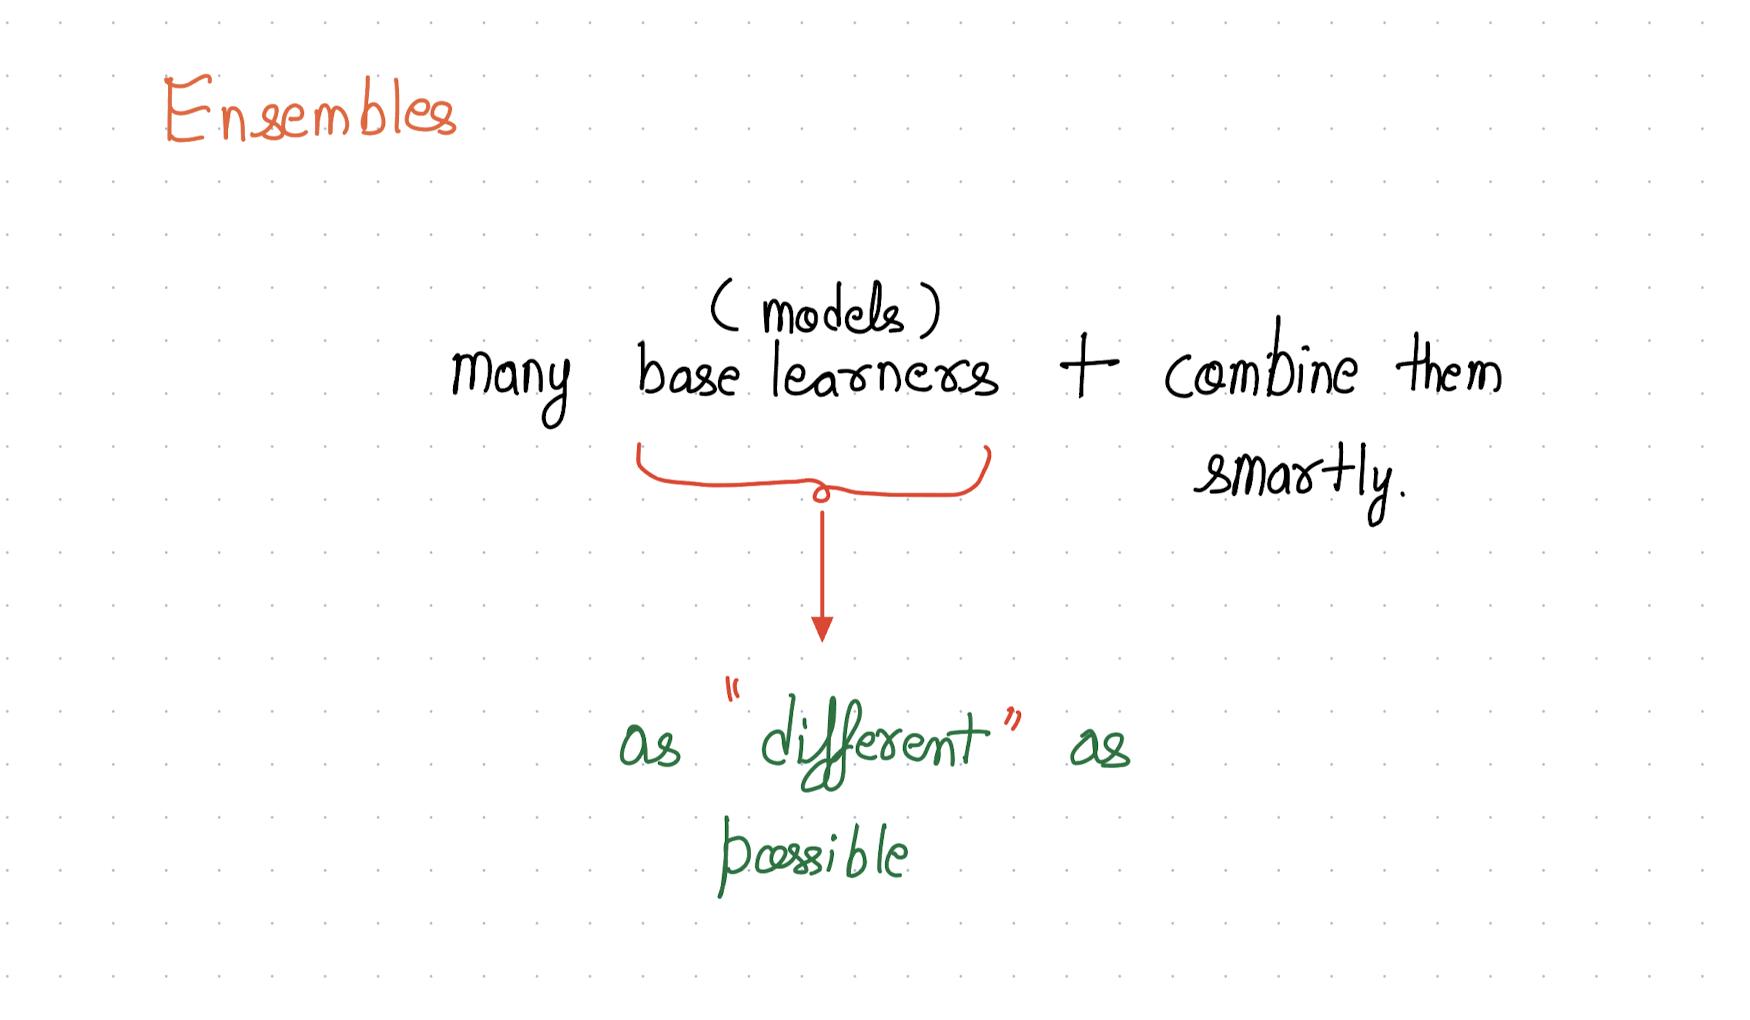 Ensembles
(models)
many base learners + combine them
smartly.
as "different" as
possible